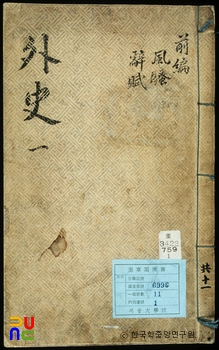 前編
風謠
辭賦
外史 一
奎
3422
759
1
6996
11
1
共十一
© 한국학중앙연구원